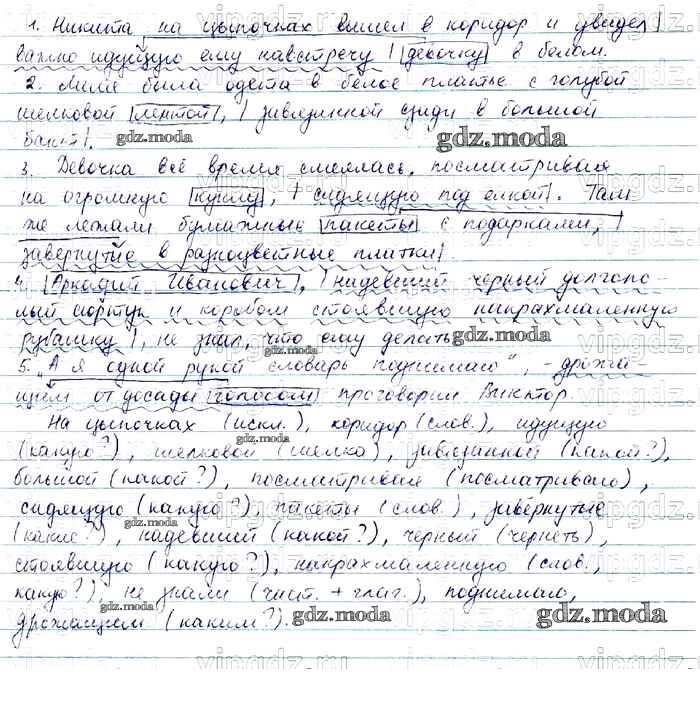 1. Никита на цыпочках вышел в коридор и увидел
важно идущую ему навстречу | девочку в белом.
2. Лиля была одета в белое платье с голубой
шелковой лентой, | завязанной сзади в большой
бант|.
3. Девочка всё время смеялась, посматривая
на огромную куклу, | сидящую под елкой|. Там
же лежали бумажные пакеты с подарками, |
завернутые в разноцветные платки|.
4. Аркадий Иванович, | надевший черный долгопо-
лый сюртук и коробом стоявшую накрахмаленную
рубашку |, не знал, что ему делать.
5. „А я одной рукой словарь поднимаю", - дрожа-
щим от досады голосом проговорил Виктор.
На цыпочках (искл.), коридор (слов.), идущую
(какую?), шелковой (шелко), завязанной (какой?),
большой (какой?), посматривая (посматриваю),
сидящую (какую?), пакеты (слов.), завёрнутые
(какие?), надевший (какой?), черный (чернеть),
стоявшую (какую?), накрахмаленную (слов.,
какую?), не знали (част. + глаг.), поднимаю,
дрожащим (каким?).
gdz.moda
vipgdz.ru